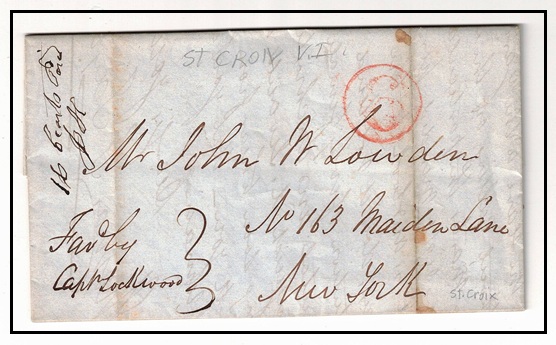 ST CROIX V.I.
16 Cents Paid
6
Mr John W Lowden
No 163 Maiden Lane
Favd by
Capt Lockwood
New York
St. Croix